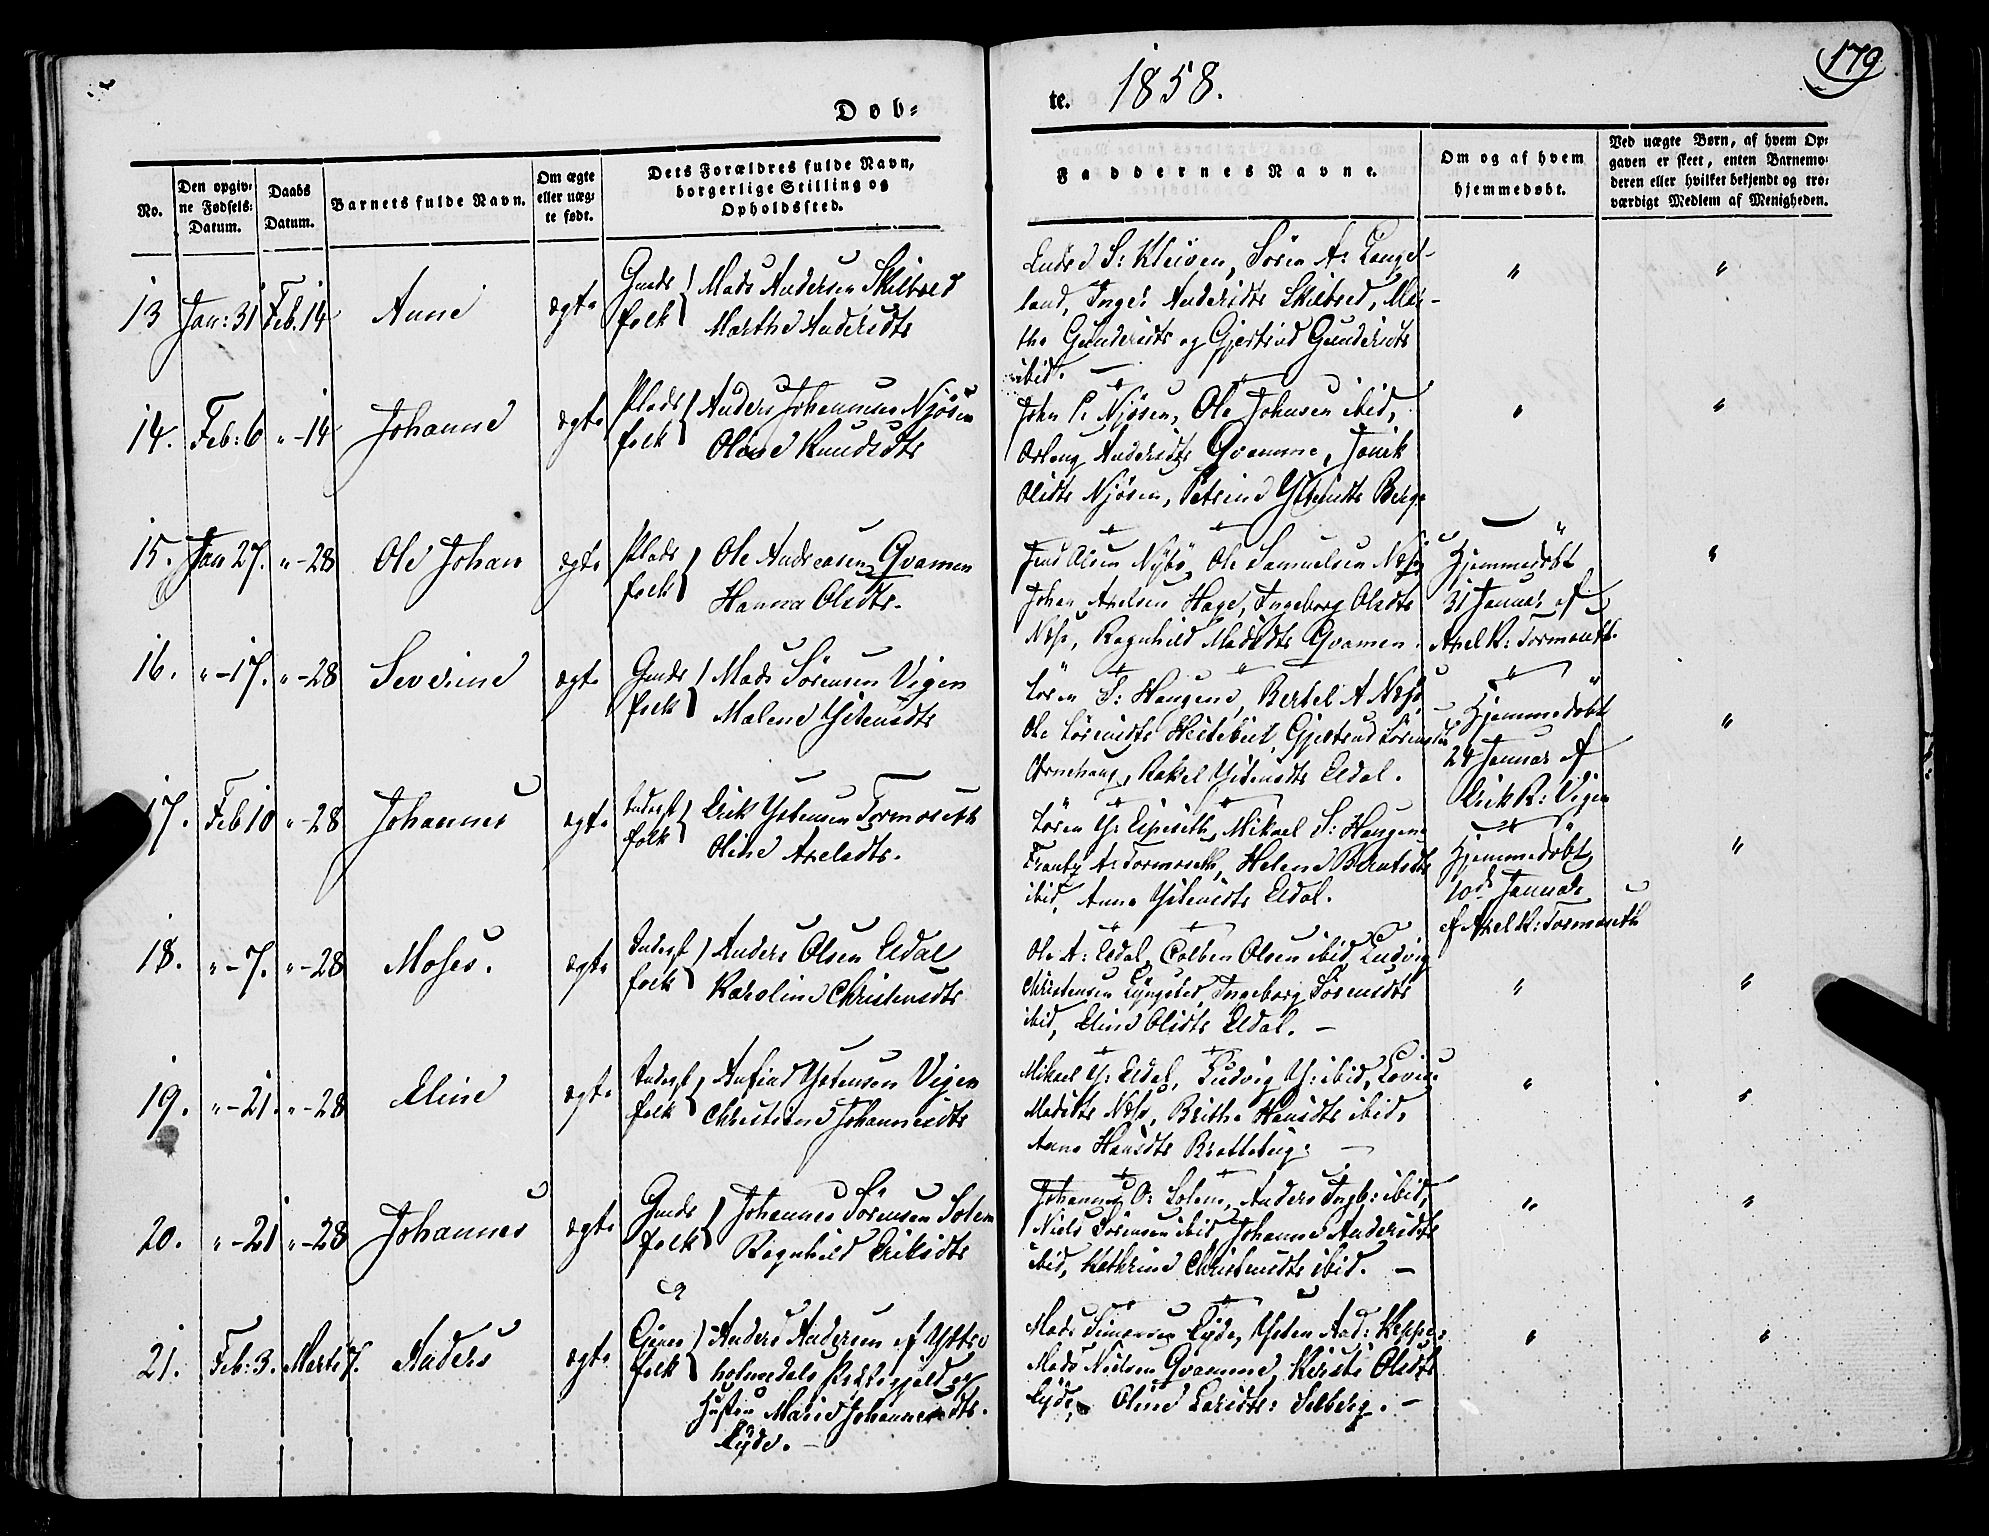 179
Døb-
te. 1858.
No.
Den opgiv-
ne Fødsels-
Datum.
Daabs
Datum.
Barnets fulde Navn.
Om ægte
eller uæg-
te født.
Dets Forældres fulde Navn,
borgerlige Stilling og
Opholdssted.
Faddernes Navne.
Om og af hvem
hjemmedøbt.
Ved uægte Børn, af hvem Op-
gaven er skeet, enten Barnemo-
deren eller hvilket bekjendt og tro-
værdigt Medlem af Menigheden.
13 Jan: 31 Feb. 14 Anne ægte Gmds
folk Mads Andersen Skilbred
Marthe Andersdtr
Endre S: Kleiven, Sören A: Langel-
land, Inger Andersdtr Skilbred, Mar-
the Gundersdtr og Gjertrud Gundersdtr
ibid. —
14. Feb: 6 " - 14 Johanne ægte Plads
folk Anders Johannesen Njösen
Oline Knudsdtr
John P. Njösen, Ole Johnsen ibid,
Andersdtr Qvamme,
Olsdtr Njösen, Petrine Ystensdtr Berge
15. Jan 27. " - 28 Ole Johan ægte Plads
folk Ole Andreasen Qvamen
Hanna Olsdtr.
Olsen Nybö, Ole Samuelsen Næse
Johan Axelsen Hage, Ingeborg Olsdtr
Næse, Ragnhild Madsdtr Qvamen.
Hjemmedöbt
31 Januar af
Axel R: Tormoseth.
16. " - 17. " - 28 Severine ægte Gmds
folk Mads Sörensen Vigen
Malene Ystensdtr
Sören S: Haugene, Bertel A Næse,
Ole Gjertrud Sörensdtr
Ornehaug, Rakel Ystensdtr Eldal.
Hjemmedöbt
24 Januar af
Erik R: Vigen
17. Feb 10 " - 28 Johannes ægte Inderst
folk Erik Ystensen Tormoseth
Oline Axelsdtr.
Sören Y: Espeseth, Mikael S: Haugene
Frantz A: Tormoseth, Helene Berntsdtr
ibid, Anna Ystensdtr Eldal.
Hjemmedöbt
10de Januar
af Axel R: Tormoseth
18. " - 7. " - 28 Moses. ægte Inderst
folk Anders Olsen Eldal
Karoline Christensdtr
Ole A: Eldal, Colben Olsen ibid, Ludvig
Christensen Lyngsted, Ingeborg Sörensdtr
ibid, Eline Olsdtr Eldal. —
19. " - 21. " - 28 Eline ægte Inderst
folk Anfind Ystensen Vigen
Christine Johannesdtr
Mikael Y: Eldal, Ludvig Y: ibid, Lovise
Madsdtr Næse, Brithe Hansdtr ibid,
Anna Hansdtr Brattebeig. —
20. " - 21 " - 28 Johannes ægte Gmds
folk Johannes Sörensen Solem
Ragnhild Eriksdtr
Johannes O: Solem, Anders Ingb: ibid,
Niels Sörensen ibid, Johanne Andersdtr
ibid, Kathrine Christensdtr ibid. —
21. Feb: 3. Marts 7. Anders ægte
folk Anders Andersen af Yttre
holmedals Præstegjæld og
Hustru Marie Johannesdtr.
Eyde. —
Mads Simonsen Eyde, Ysten And:
Mads Nielsen Qvamme, Kirsti Olsdtr
Eyde, Oline Larsdtr: Selberg. —